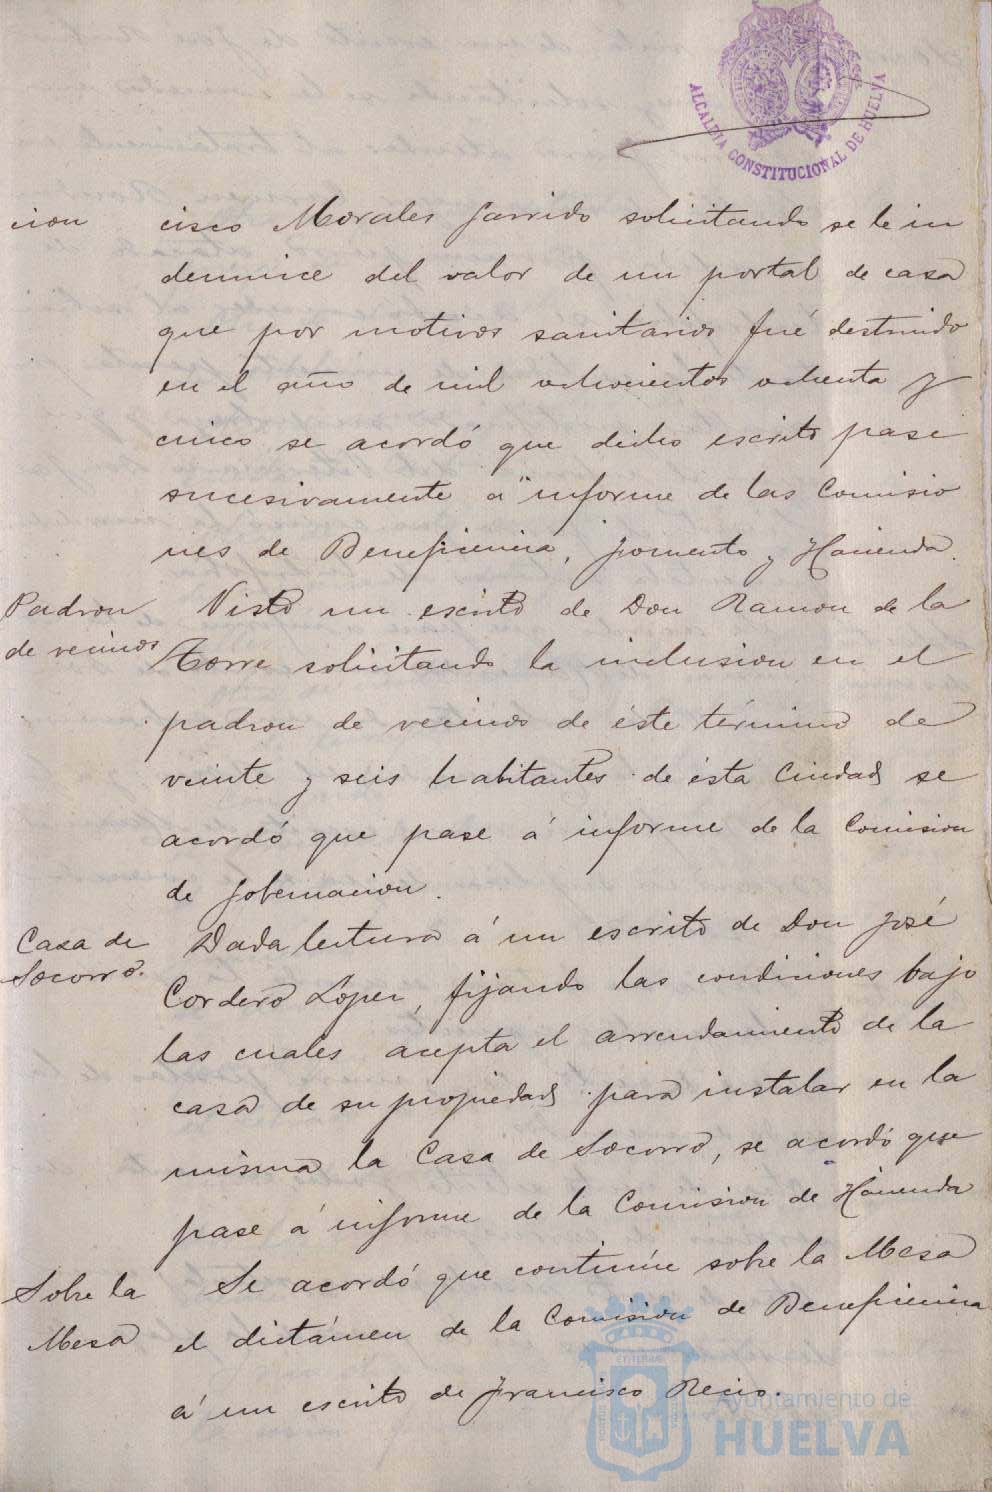 ALCALDIA CONSTITUCIONAL DE HUELVA
cion
cisco Morales Garrido solicitando se le in
demnice del valor de un portal de casa
que por motivos sanitarios fué destruido
en el año de mil ochocientos ochenta y
cinco se acordó que dicho escrito pase
sucesivamente á informe de las Comisio
nes de Beneficencia, Fomento y Hacienda.
Padron
de vecinos
Visto un escrito de Don Ramon de la
Torre solicitando la inclusion en el
padron de vecinos de éste término de
veinte y seis habitantes de ésta Ciudad se
acordó que pase á informe de la Comision
de Gobernacion.
Casa de
Socorro.
Dada lectura á un escrito de Don José
Cordero Lopez, fijando las condiciones bajo
las cuales acepta el arrendamiento de la
casa de su propiedad para instalar en la
misma la Casa de Socorro, se acordó que
pase á informe de la Comision de Hacienda
Sobre la
Mesa
Se acordó que continúe sobre la Mesa
el dictámen de la Comision de Beneficencia
á un escrito de Francisco Recio.
Ayuntamiento de
HUELVA